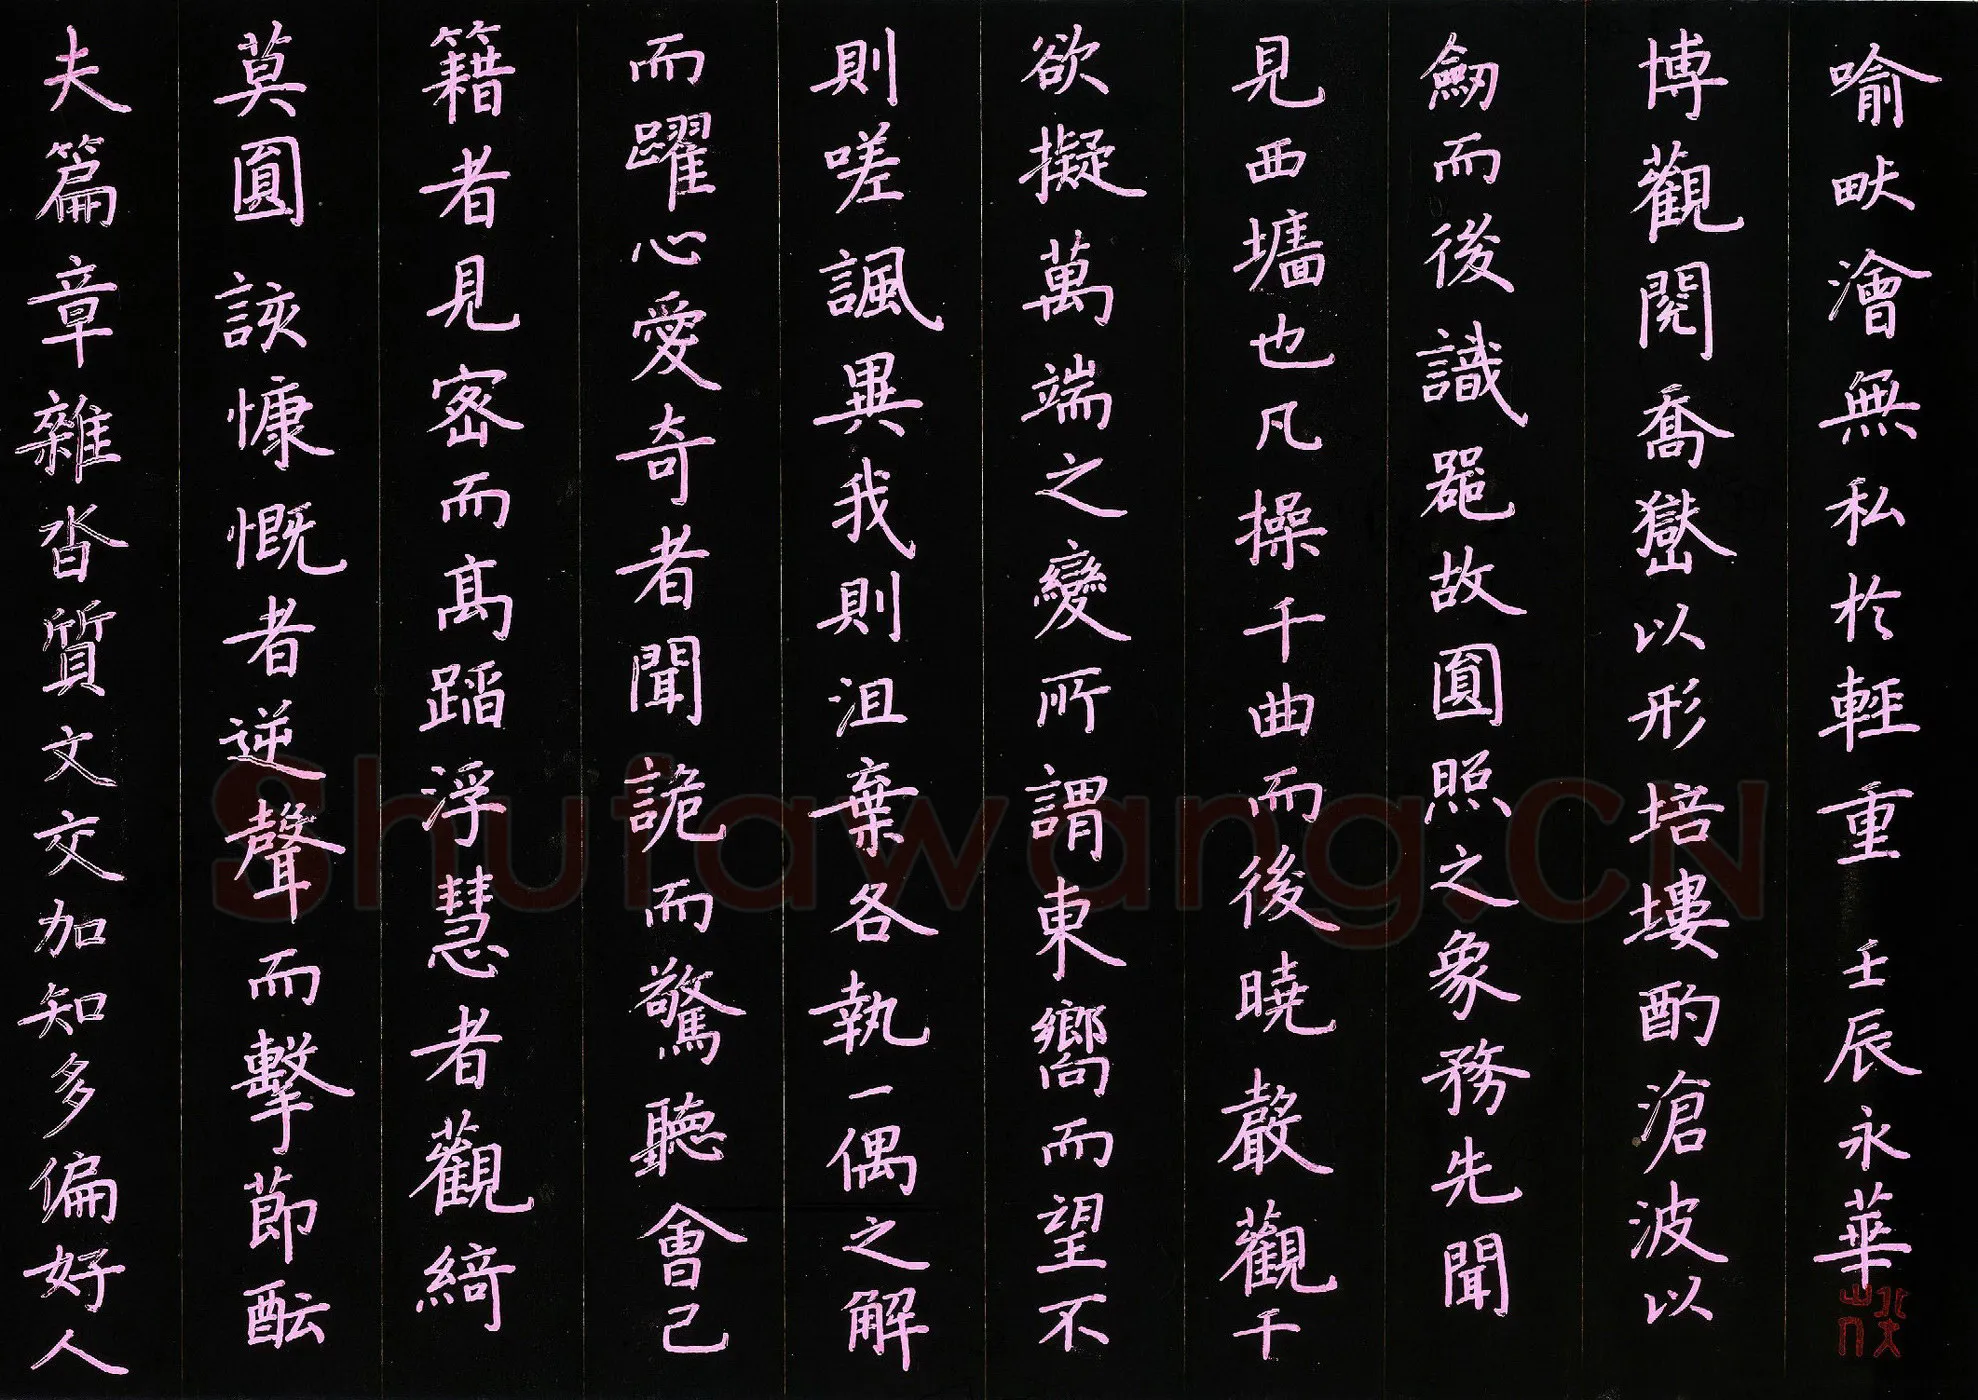 夫篇章雜沓質文交加知多偏好人
莫圓該慷慨者逆聲而擊節酝
籍者見密而高蹈浮慧者觀綺
而躍心愛奇者聞詭而驚聽會己
則嗟諷異我則沮棄各執一偶之解
欲擬萬端之變所謂東嚮而望不
見西墻也凡操千曲而後曉嚴觀千
劒而後識器故圓照之象務先聞
博觀閱喬嶽以形培塿酌滄波以
喻畎澮無私於輕重 壬辰永華
Shufawang.CN